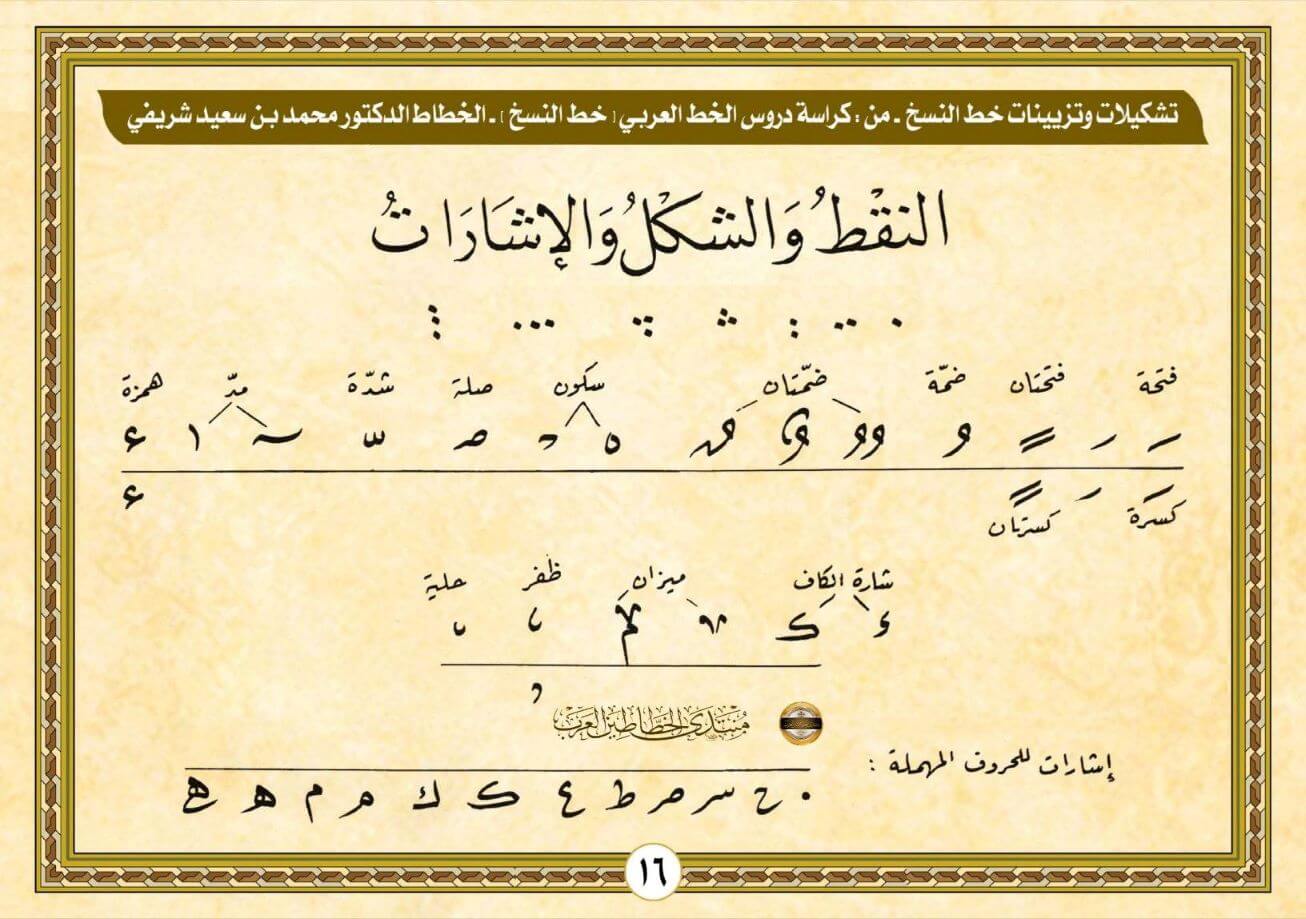 تشكيلات وتزيينات خط النسخ - من : كراسة دروس الخط العربي [ خط النسخ ] - الخطاط الدكتور محمد بن سعيد شريفي
النقْطُ وَالشكْلُ وَالإشَارَاتُ
فتحة فتحتان ضمّة ضمّتان سكون صلة شدّة مدّ همزة
كسرة كسرتان
شارة الكاف ميزان ظفر حلية
منتدى الخطاطين العرب
إشارات للحروف المهملة :
ح س ص ط ع ك ك م م ه ه
١٦